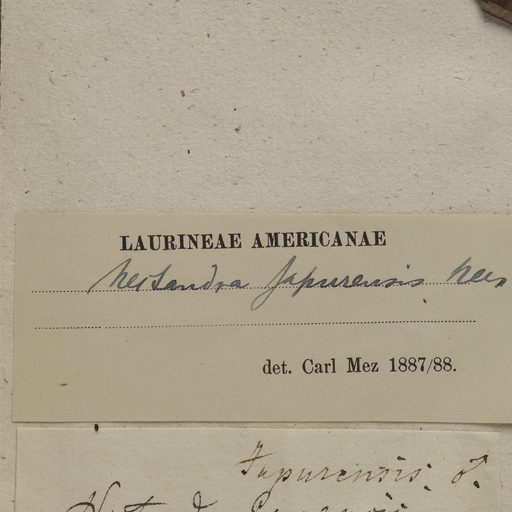 LAURINEAE AMERICANAE
Nectandra Japurensis Nees
det. Carl Mez 1887/88.
Japurensis. ♂.